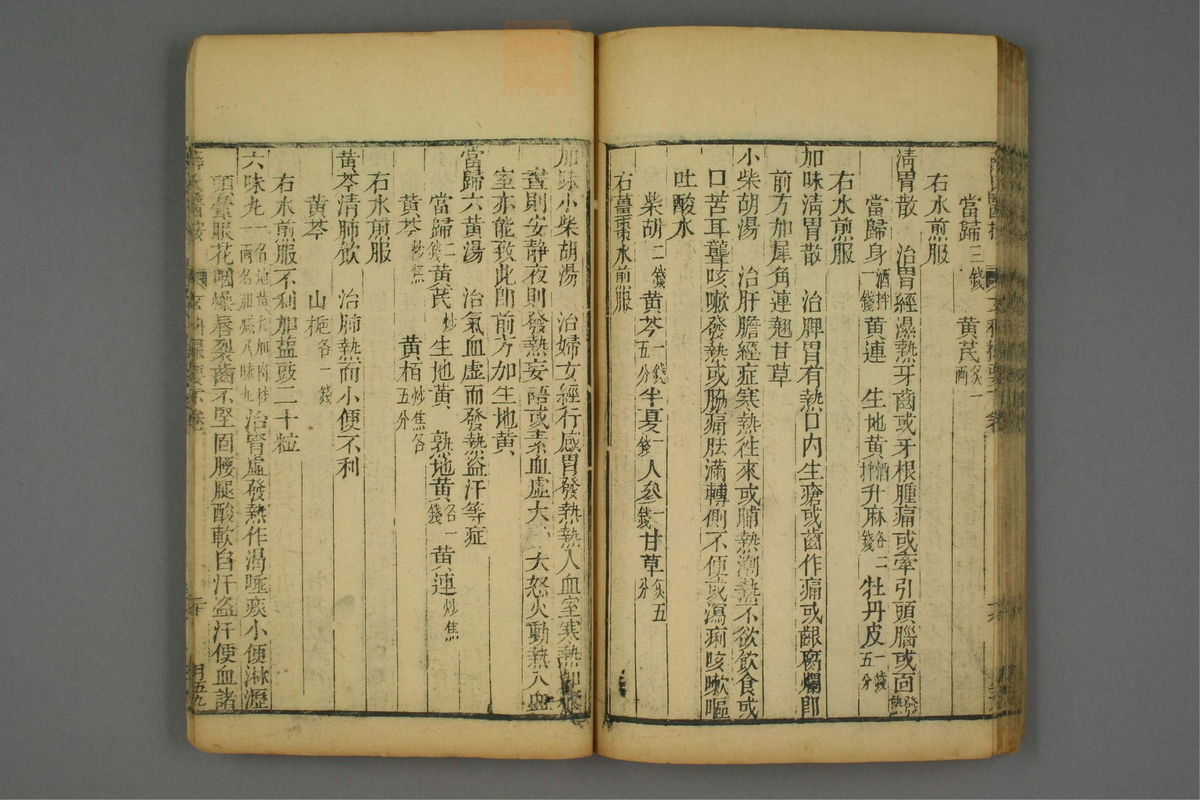 當歸三錢 黃芪炙一兩
右水煎服
清胃散 治胃經濕熱牙齒或牙根腫痛或牽引頭腦或面發熱
當歸身酒拌一錢黃連 生地黃酒拌升麻各二錢牡丹皮一錢五分
右水煎服
加味清胃散 治脾胃有熱口內生瘡或齒作痛或齦腐爛即
前方加犀角連翹甘草
小柴胡湯 治肝膽經症寒熱徃來或脯熱潮熱不欲飲食或
口苦耳聾咳嗽發熱或脇痛胠滿轉側不便或瀉痢咳嗽嘔
吐酸水
柴胡二錢黃芩一錢五分半夏一錢人參一錢甘草炙五分
右薑棗水煎服
加味小柴胡湯 治婦女經行感冒發熱熱入血室寒熱如瘧
晝則安靜夜則發熱妄語或素血虛大 大怒火動熱入血
室亦能致此即前方加生地黃
當歸六黃湯 治氣血虛而發熱盜汗等症
當歸二錢黃芪炒生地黃 熟地黃各一錢黃連炒焦
黃芩炒焦 黃栢炒焦各五分
右水煎服
黃芩清肺飲 治肺熱而小便不利
黃芩 山梔各一錢
右水煎服不利加盐豉二十粒
六味丸一名地黃丸加肉桂一兩名八味丸治腎虛發熱作渴唾痰小便淋瀝
頭暈眼花咽燥唇裂齒不堅固腰腿酸軟自汗盜汗便血諸